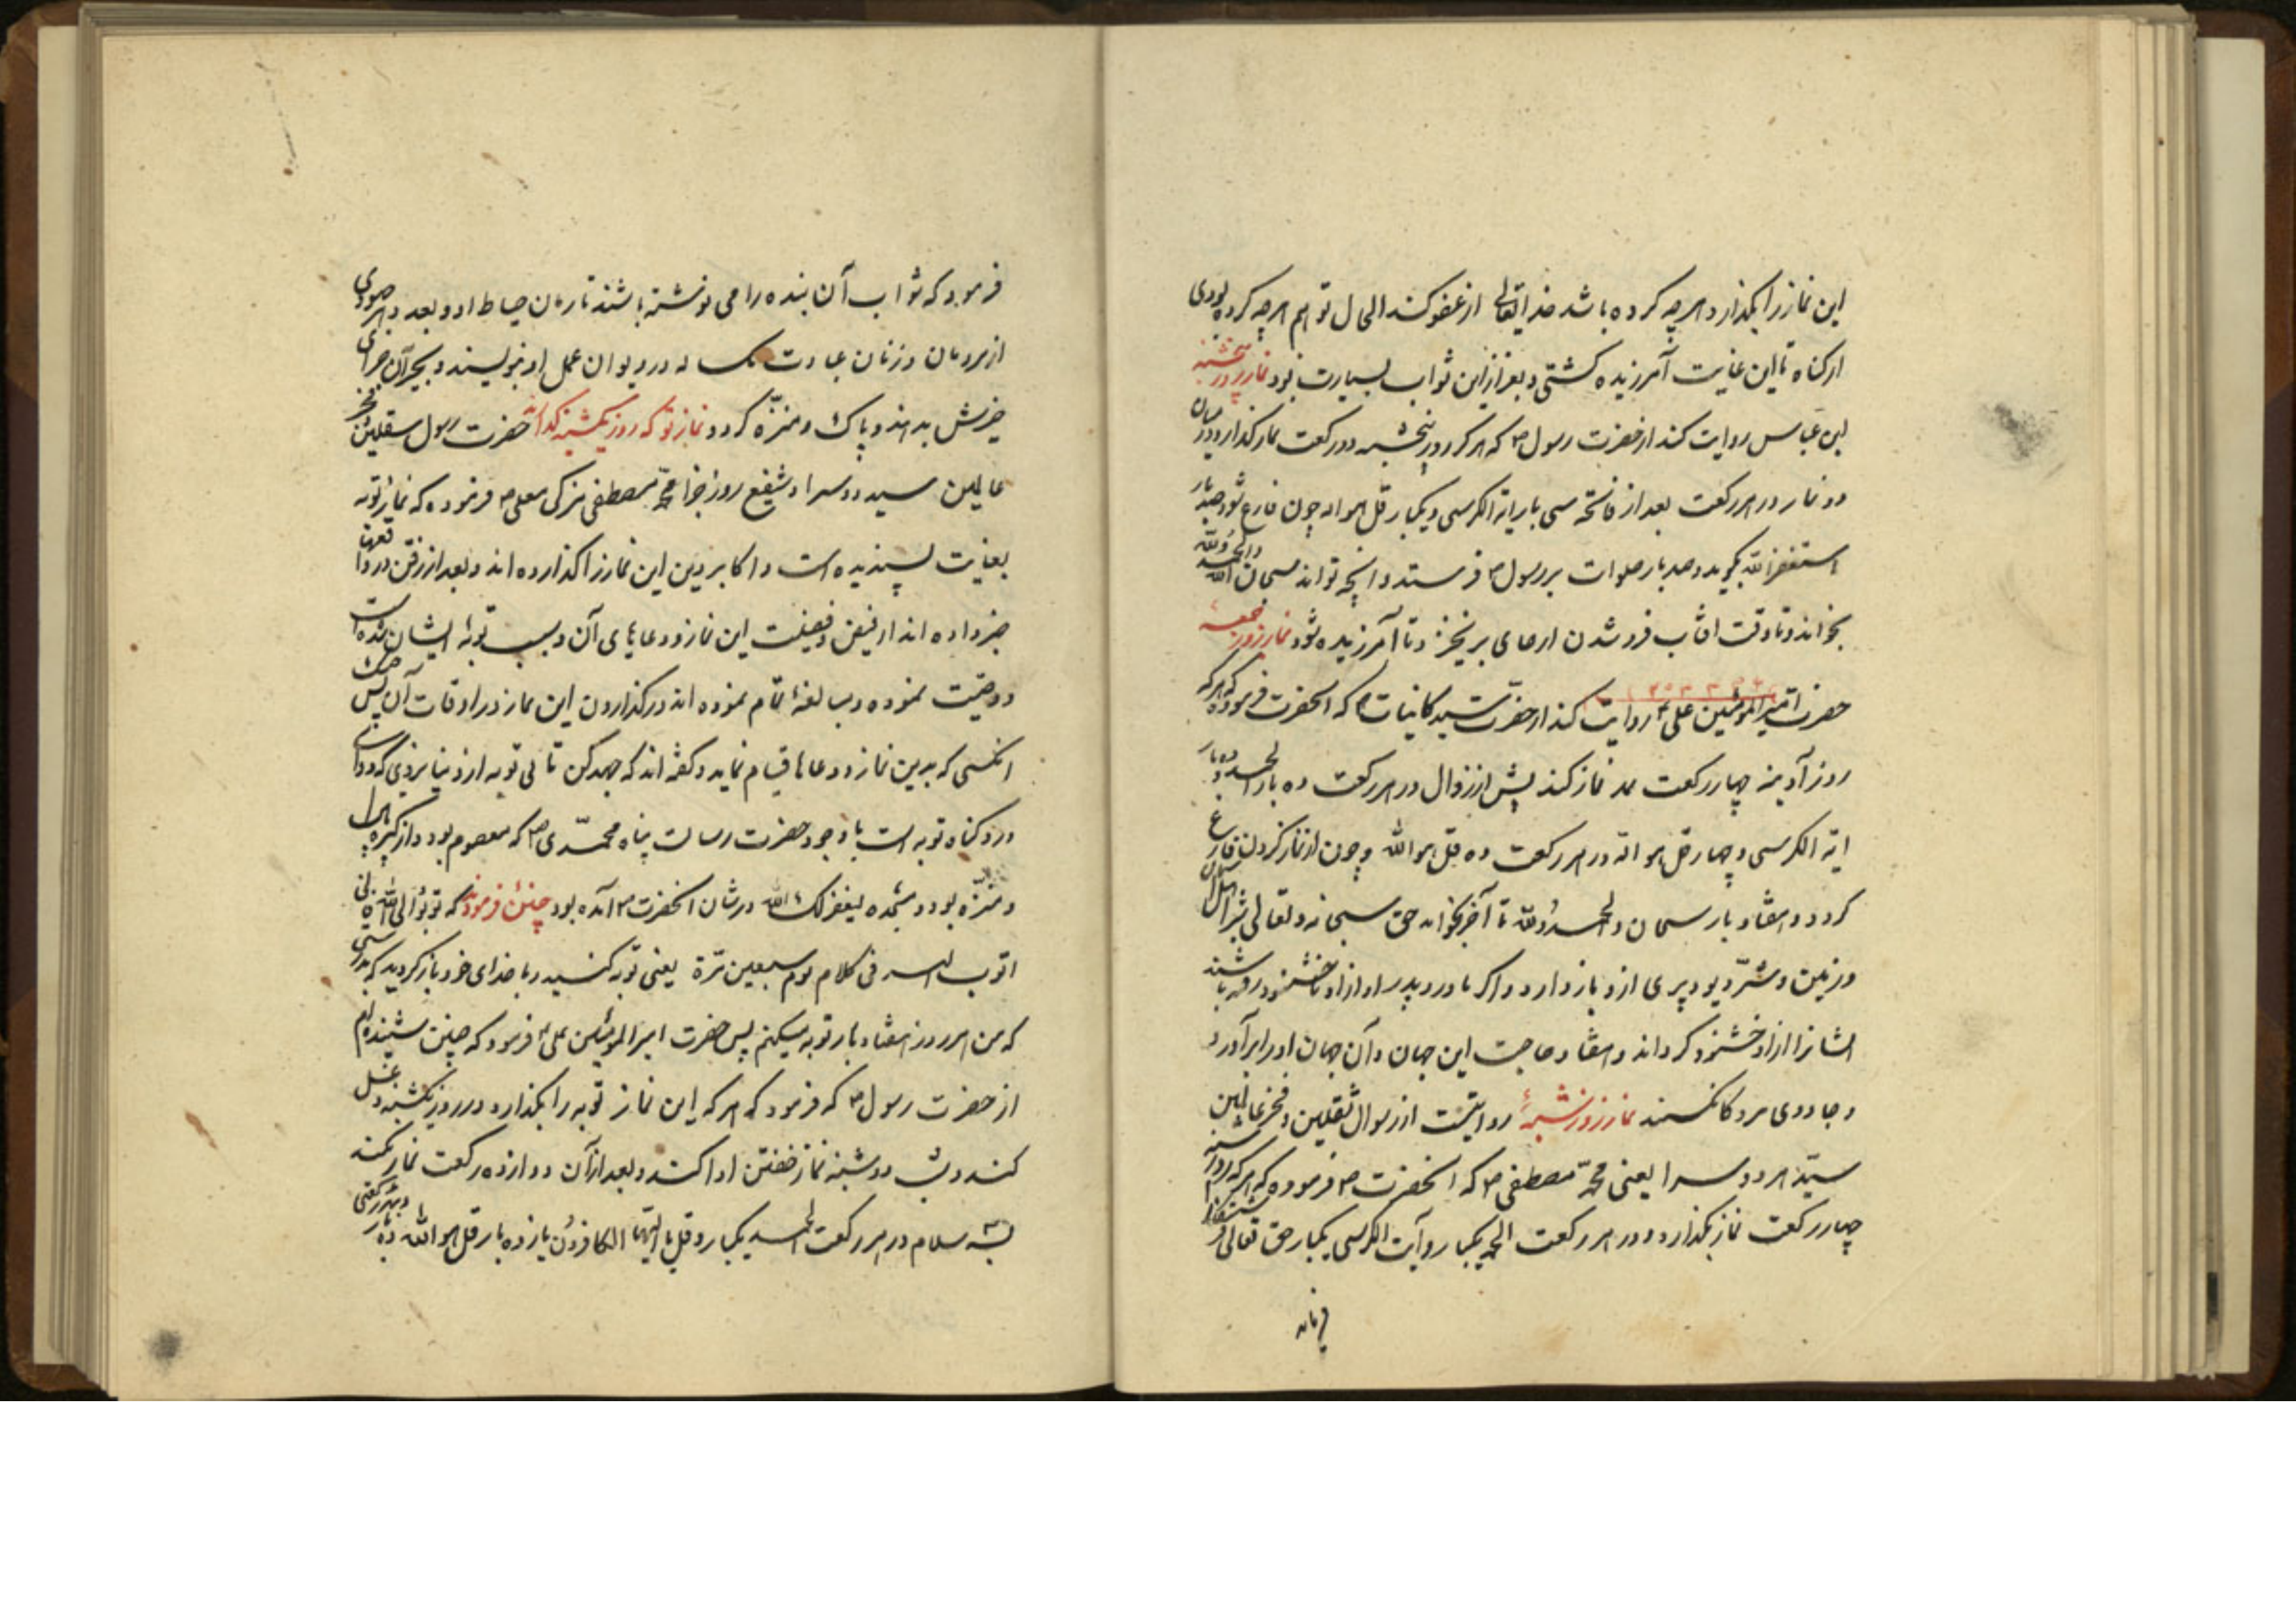 این نماز را بگذارد و هر چه کرده باشد خدایتعالی از عفو کند الحال تو هم هر چه کرده بودی
از گناه تا این غایت آمرزیده گشتی و بغیر ازین ثواب بسیارت بود نماز روز پنجشنبه
ابن عباس روایت کند از حضرت رسول ص که هر که روز پنجشنبه دو رکعت نماز گذارد در میان
دو نماز در هر رکعت بعد از فاتحه سی بار ایة الکرسی و یکبار قل هو الله چون فارغ شود صد بار
استغفر الله بگوید و صد بار صلوات بر رسول ص فرستد و آنچه تواند سبحان الله والحمد لله
بخواند و تا وقت افتاب فرو شدن از جای بر نخیزد تا آمرزیده شود نماز روز جمعه
حضرت امیر المومنین علی ع روایت کند از حضرت سید کاینات ص که انحضرت فرموده که هر که
روز آدینه چهار رکعت نماز کند پیش از زوال در هر رکعت ده بار الحمد و ده بار
ایة الکرسی و چهار قل هو الله در هر رکعت ده قل هو الله و چون از نماز کردن فارغ
کردد و هفتاد بار سبحان والحمد لله تا آخر بخواند حق سبحانه و تعالی شر اهل آسمان
و زمین و شر دیو و پری ازو باز دارد و اگر مادر و پدر او از او ناخشنود رفته باشند
ایشانرا از او خشنود کرداند و هفتاد حاجت این جهان و آن جهان او را برآورد
و جادوی بدو کار نکند نماز روز شنبه روایتست از رسول ثقلین و فخر عالمین
سید هر دو سرا یعنی محمد مصطفی ص که انحضرت ص فرموده که هر که روز شنبه
چهار رکعت نماز بگذارد و در هر رکعت الحمد یکبار و آیت الکرسی یکبار حق تعالی
فرماید
فرمود که ثواب آن بنده را می نوشته باشند تا زمان حیات او و بعد
از مردمان و زنان عبادت یک ساله در دیوان عمل او بنویسند و بجز آن جزای
خیرش بدهند و پاک و منزه کردد نماز توبه که روز یکشنبه گذارند حضرت رسول ثقلین و فخر
عالمین سید دو سرا و شفیع روز جزا محمد مصطفی مزکی معلی ص فرموده که نماز توبه
بغایت پسندیده است و اکابر دین این نماز را گذارده اند و بعد از رفتن در واقعها
خبر داده اند از فیض و فضیلت این نماز و دعاهای آن و سبب توبه ایشان شده است
و وصیت نموده و مبالغه تمام نموده اند در گذاردن این نماز در اوقات آن پس
انکسی که بدین نماز و دعاها قیام نماید و گفته اند که جهد کن تا بی توبه از دنیا نروی که دوای
درد گناه توبه است با وجود حضرت رسالت پناه محمدی ص که معصوم بود و از کبیره
و منزه بود و مژده لیغفر لک الله در شان انحضرت ص آمده بود چنین فرمودند که توبوا الی الله فانی
اتوب الیه فی کل یوم سبعین مرة یعنی توبه کنید و با خدای خود باز کردید که بدرستی
که من هر روز هفتاد بار توبه میکنم پس حضرت امیر المومنین علی ع فرمود که چنین شنیده ام
از حضرت رسول ص که فرمود که هر که این نماز توبه را بگذارد در روز یکشنبه غسل
کند و شب دوشنبه نماز خفتن ادا کند و بعد از آن دوازده رکعت نماز کند
بسه سلام در هر رکعت الحمد یکبار و قل یا ایها الکافرون یازده بار قل هو الله ده بار